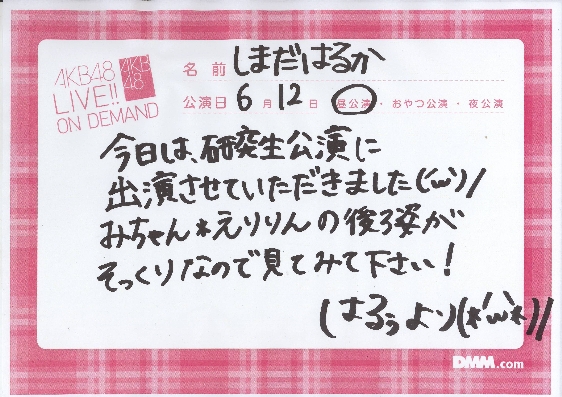 AKB48
LIVE!!
ON DEMAND
AKB
48
名前 しまだはるか
公演日 6月 12日 昼公演・おやつ公演・夜公演
今日は、研究生公演に
出演させていただきました(´ω`)/
みちゃん*えりりんの後ろ姿が
そっくりなので見てみて下さい!
(はるぅより(*´ω`*)//
DMM.com